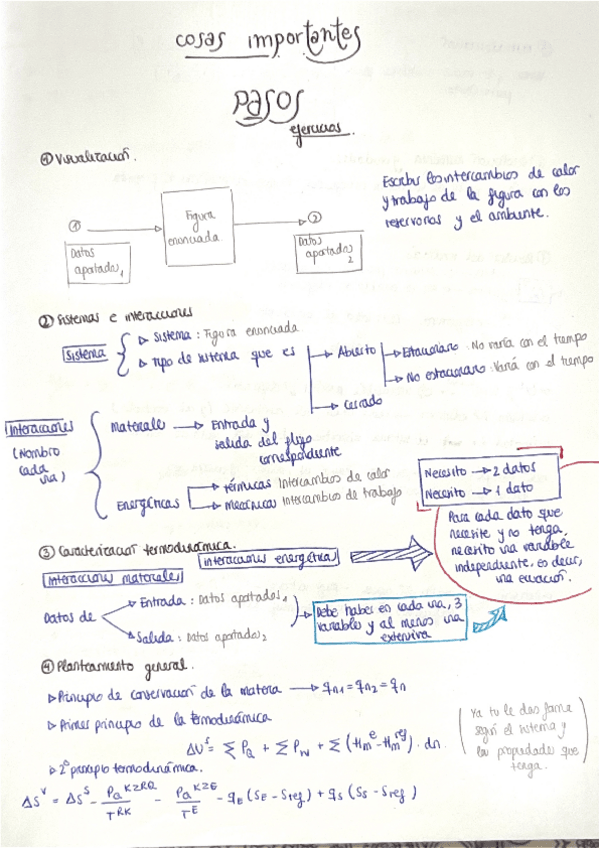 cosas importantes
PASOS
ejercicios.
① Visualización.
Escribir los intercambios de calor
y trabajo de la figura con los
reservorios y el ambiente.
①
Figura
enunciada
②
Datos
apartado 1
Datos
apartado 2
② Sistemas e interacciones
Sistema
▷ Sistema: Figura enunciada
▷ Tipo de sistema que es
Abierto
Estacionario. No varía con el tiempo
No estacionario. Varía con el tiempo
Cerrado
Interacciones
(Nombro
cada
una)
Materiales → Entrada y
salida del flujo
correspondiente
Energéticas
térmicas Intercambios de calor
mecánicas Intercambios de trabajo
Necesito → 2 datos
Necesito → 1 dato
Para cada dato que
necesite y no tenga,
necesito una variable
independiente, es decir,
una ecuación.
③ Caracterización termodinámica.
interacciones energética
interacciones materiales
Datos de
Entrada: Datos apartados 1
Salida: Datos apartados 2
Debe haber en cada una, 3
variables y al menos una
extensiva
④ Planteamiento general.
▷ Principio de conservación de la materia → qn1 = qn2 = qn
▷ Primer principio de la termodinámica
ΔUˢ = Σ PQ + Σ PW + Σ (Hmᵉ - Hmʳᵉᶠ) · dn.
Ya tu le das forma
según el sistema y
las propiedades que
tenga.
▷ 2º principio termodinámica.